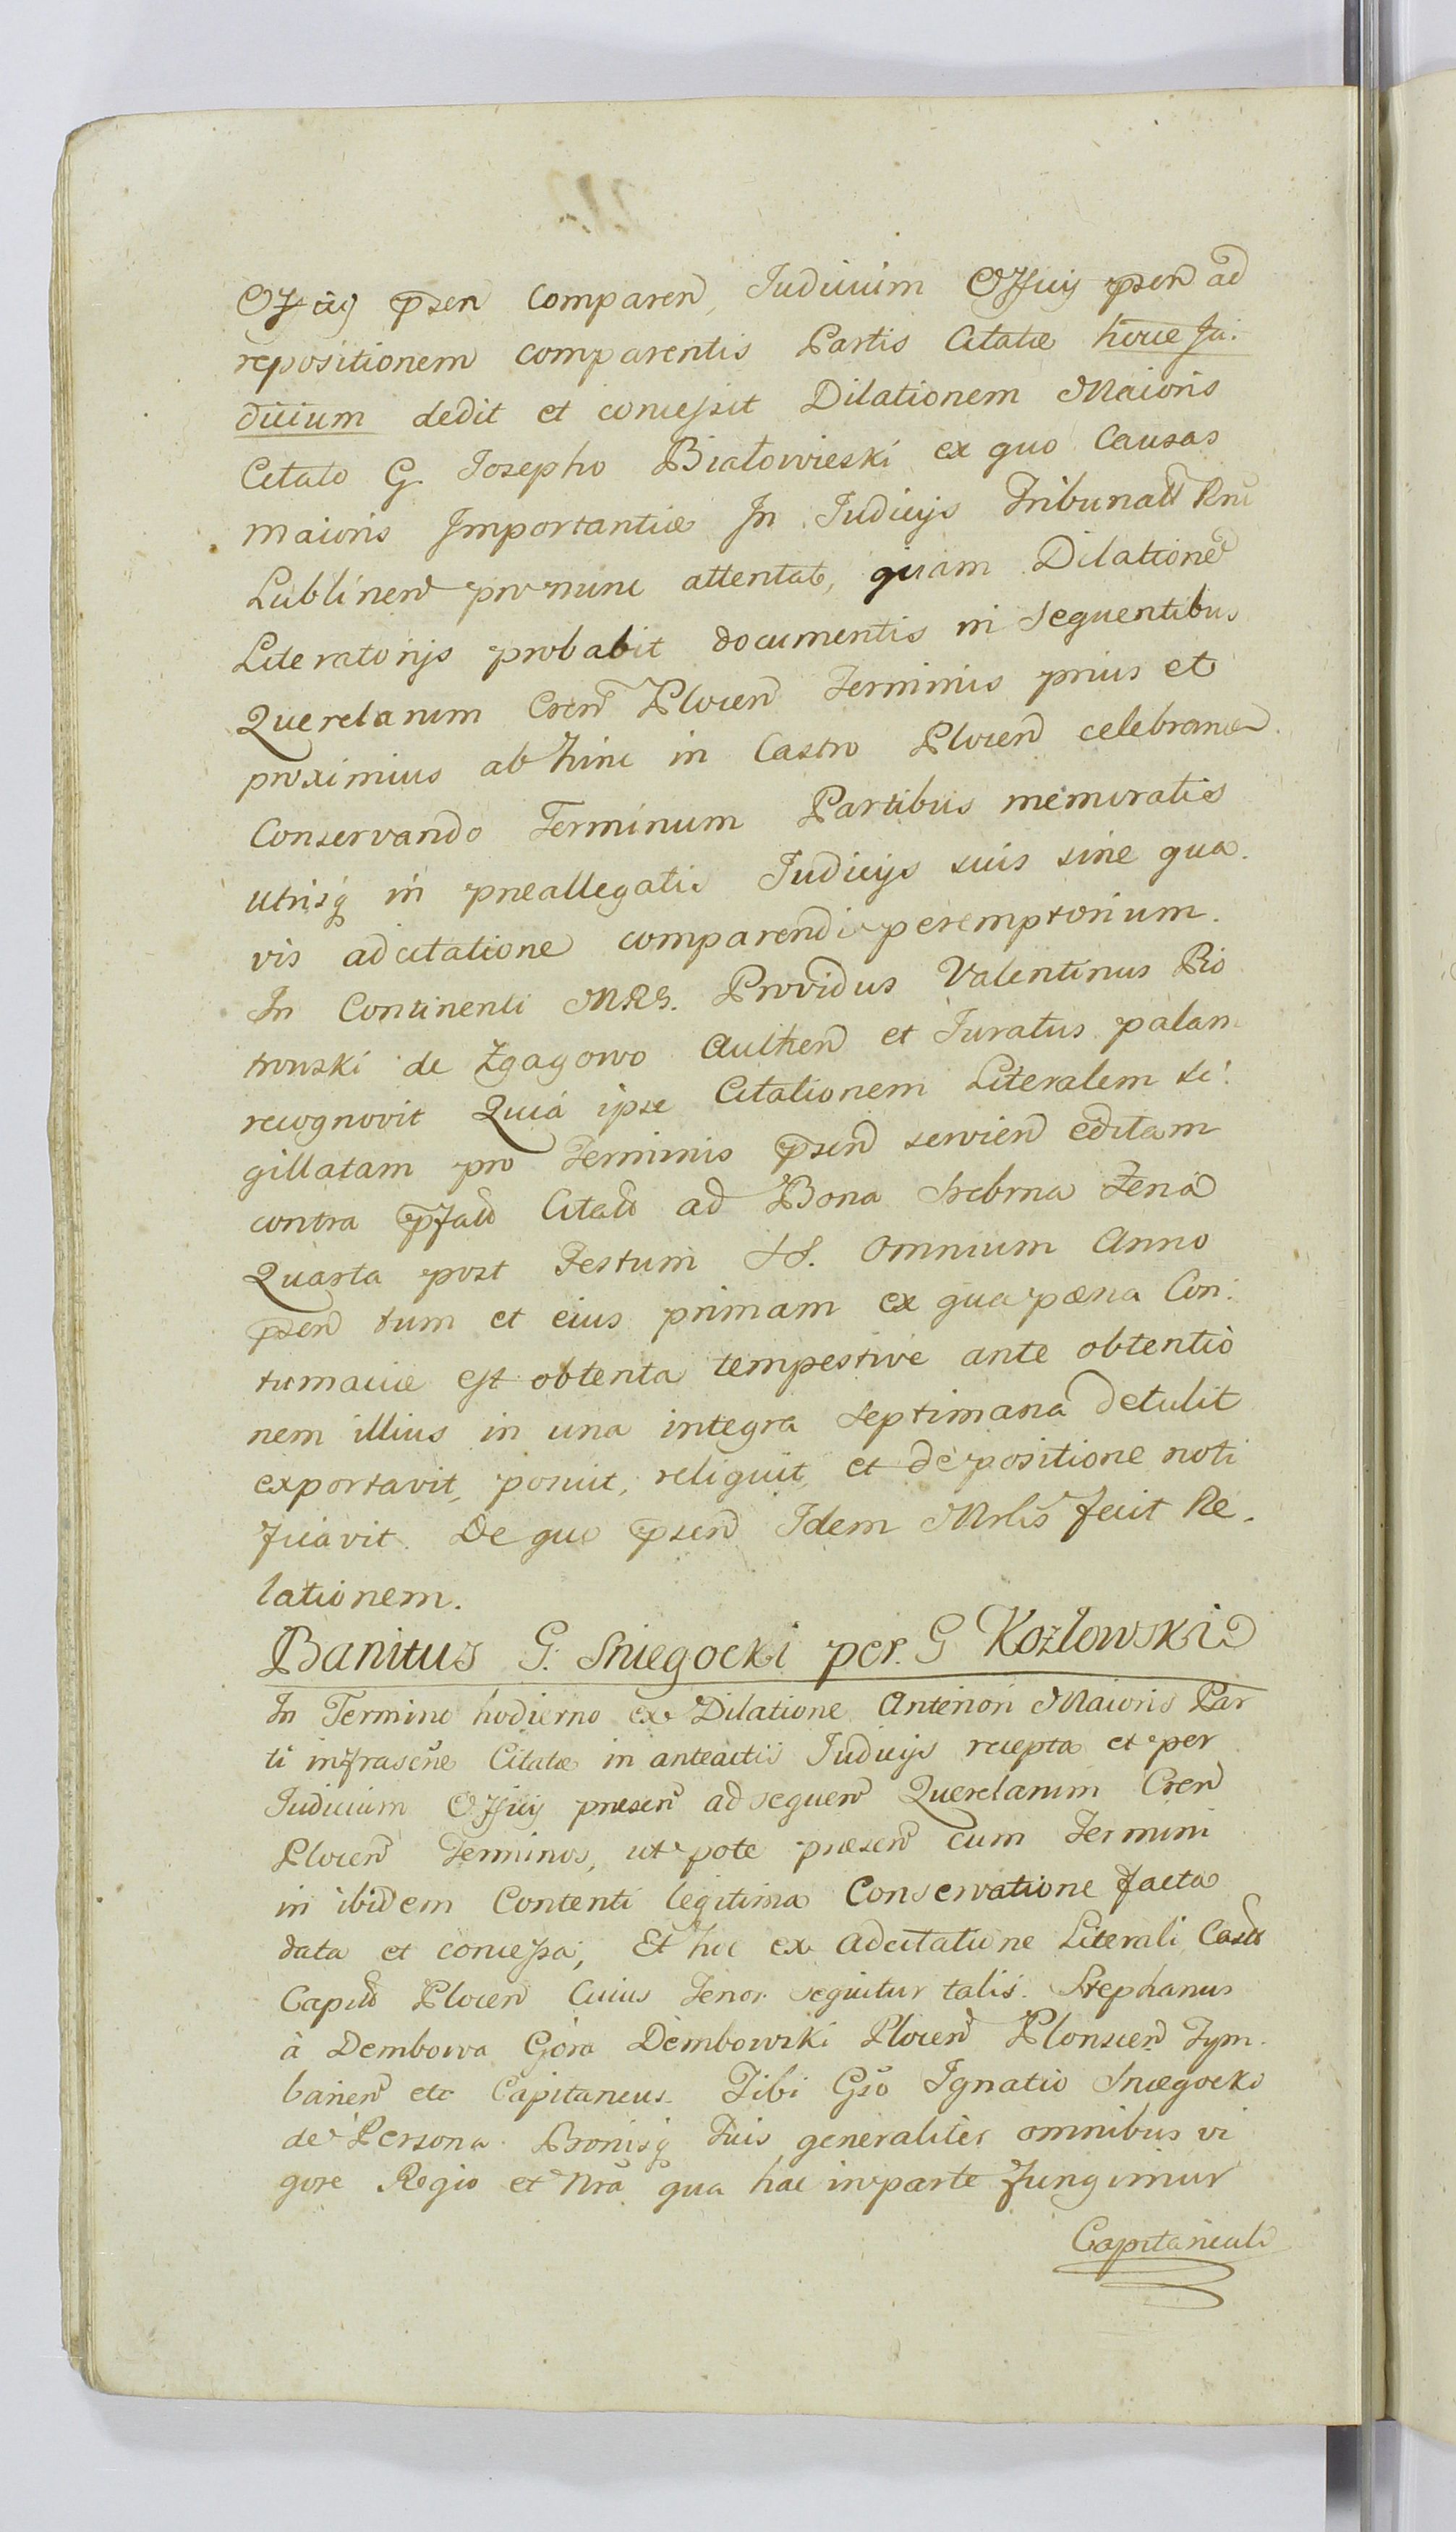 Officij p̃sen Comparen, Judicium Officij p̃sen ad
repositionem comparentis Partis Citatæ hocce Ju-
dicium dedit et concessit Dilationem Maioris
Citato G. Josepho Białowieski ex quo Causas
maioris Importantiæ In Judicijs Tribunalt̃ Rni
Lublinen pro nunc attentat, quam Dilatione
Literatorijs probabit documentis in Sequentibus
Querelarum Cren Plocen Terminis prius et
proximius ab hinc in Castro Plocen celebran
Conservando Terminum Partibus memoratis
utrisq in præallegatis Judicijs suis sine qua-
vis adcitatione comparendi peremptorium.
In Continenti MRG. Providus Valentinus Pio
trowski de Zgagowo Authen et Juratus palam
recognovit Quia ipse Citationem Literalem si-
gillatam pro Terminis p̃sen servien editam
contra p̃fato Citato ad Bona Srebrna Feria
Quarta post Festum SS. Omnium Anno
p̃sen tum et eius primam ex qua pæna Con-
tumaciæ est obtenta tempestive ante obtentio
nem illius in una integra Septimana detulit
exportavit, posuit, reliquit, et de positione noti
ficavit. De quo p̃sen Idem Mrlis fecit Re-
lationem.
Banitus G. Sniegocki per. G Kozłowski
In Termino hodierno ex Dilatione Anteriori Maioris Par
ti infrascrie Citatæ in anteactis Judicijs recepta et per
Judicium Officij præsen ad sequen Querelarum Cren
Plocen Terminos, ut pote præsen cum Termini
in ibidem Contenti legitima Conservatione facta
data et concessa, Et hoc ex adcitatione Literali Castr
Capit Plocen Cuius Tenor sequitur talis. Stephanus
à Dembowa Góra Dembowski Plocen Plonscen Tym-
barien etc Capitaneus. Tibi Gso Ignatio Sniegocki
de Persona Bonisq Tuis generaliter omnibus vi
gore Regio et Nra qua hac in parte fungimur
Capitaneali